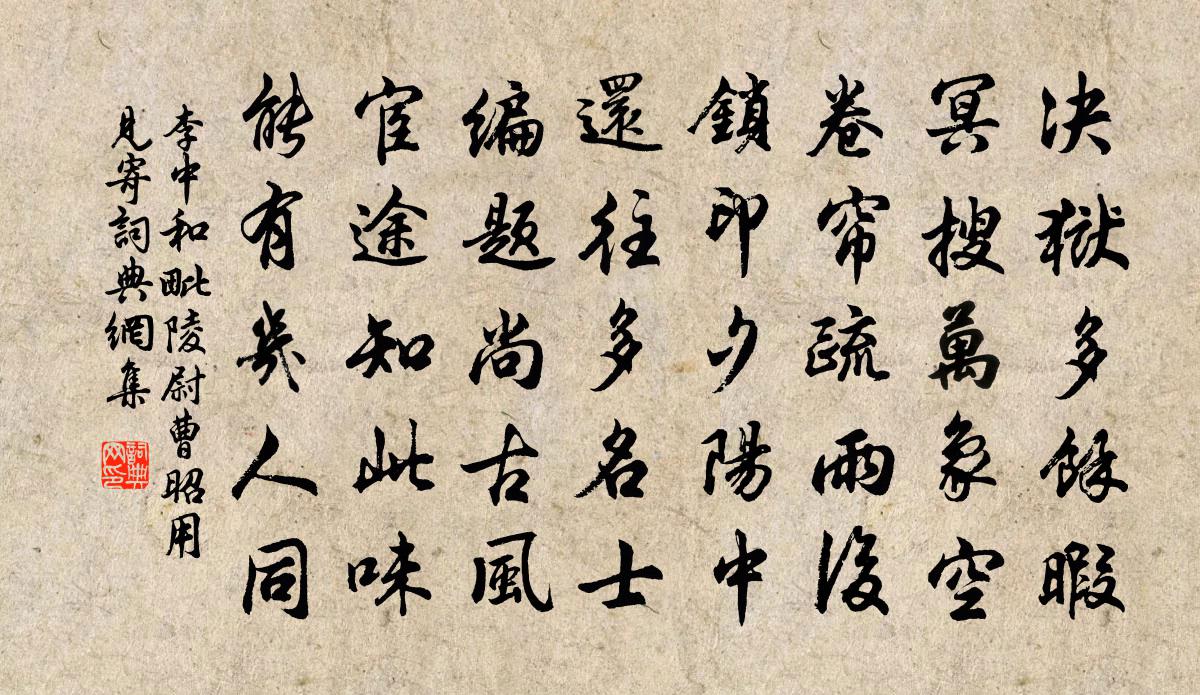 决獄多餘暇
冥搜萬象空
卷帘疏雨後
鎖印夕陽中
還往多名士
编题尚古風
宦途知此味
能有幾人同
李中和毗陵尉曹昭用
見寄詞典網集
詞典
网印